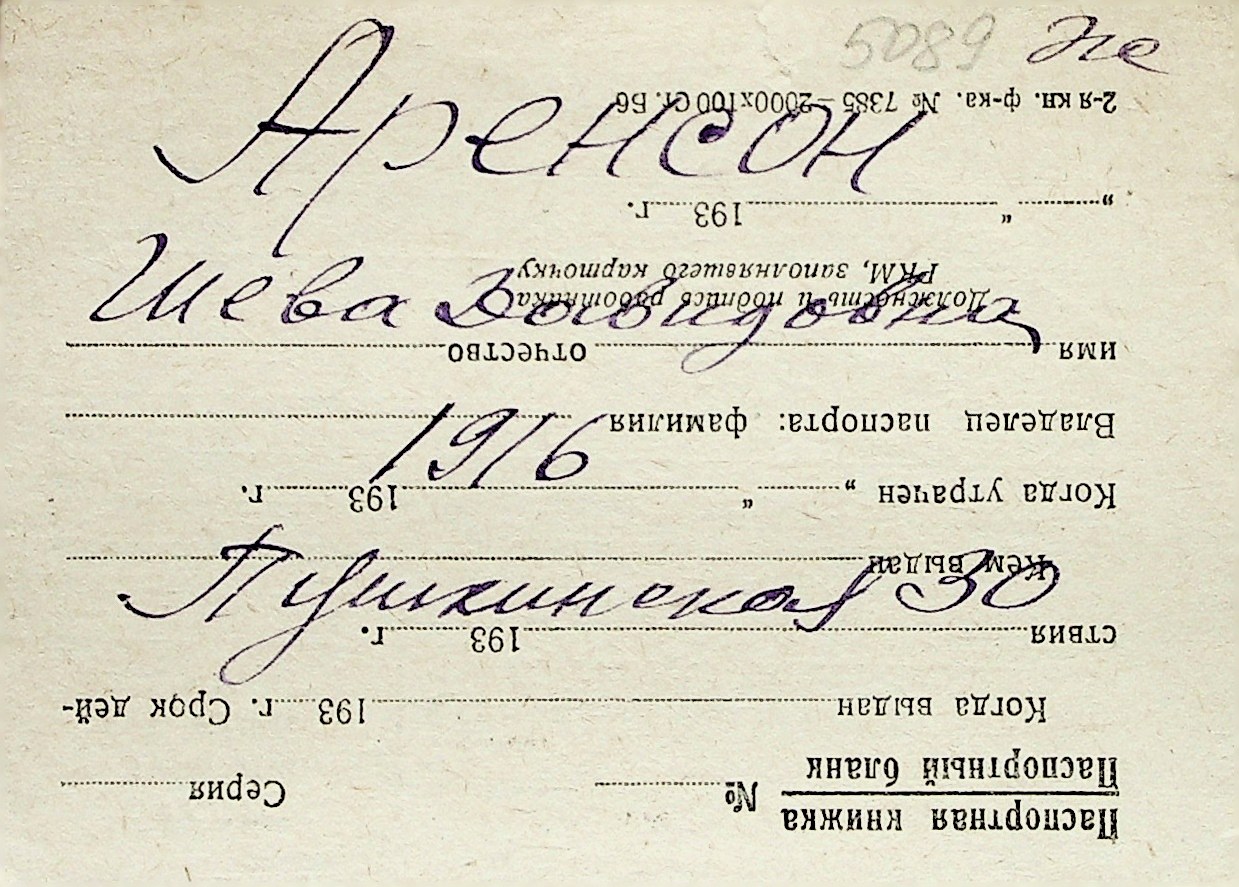 5089
Аренсон
Шева Давидовна
1916
Пушкинская 30
Паспортная книжка
Паспортный бланк
№ Серия
Когда выдан 193 г. Срок дей-
ствия 193 г.
Кем выдан
Когда утрачен „ “ 193 г.
Владелец паспорта: фамилия
имя отчество
Должность и подпись работника
РКМ, заполнявшего карточку
„ “ 193 г.
2-я кн. ф-ка. № 7385—2000х100 Ст. Б6